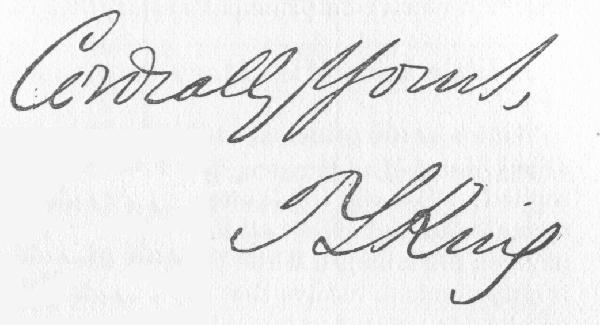 Cordially Yours,
T S King